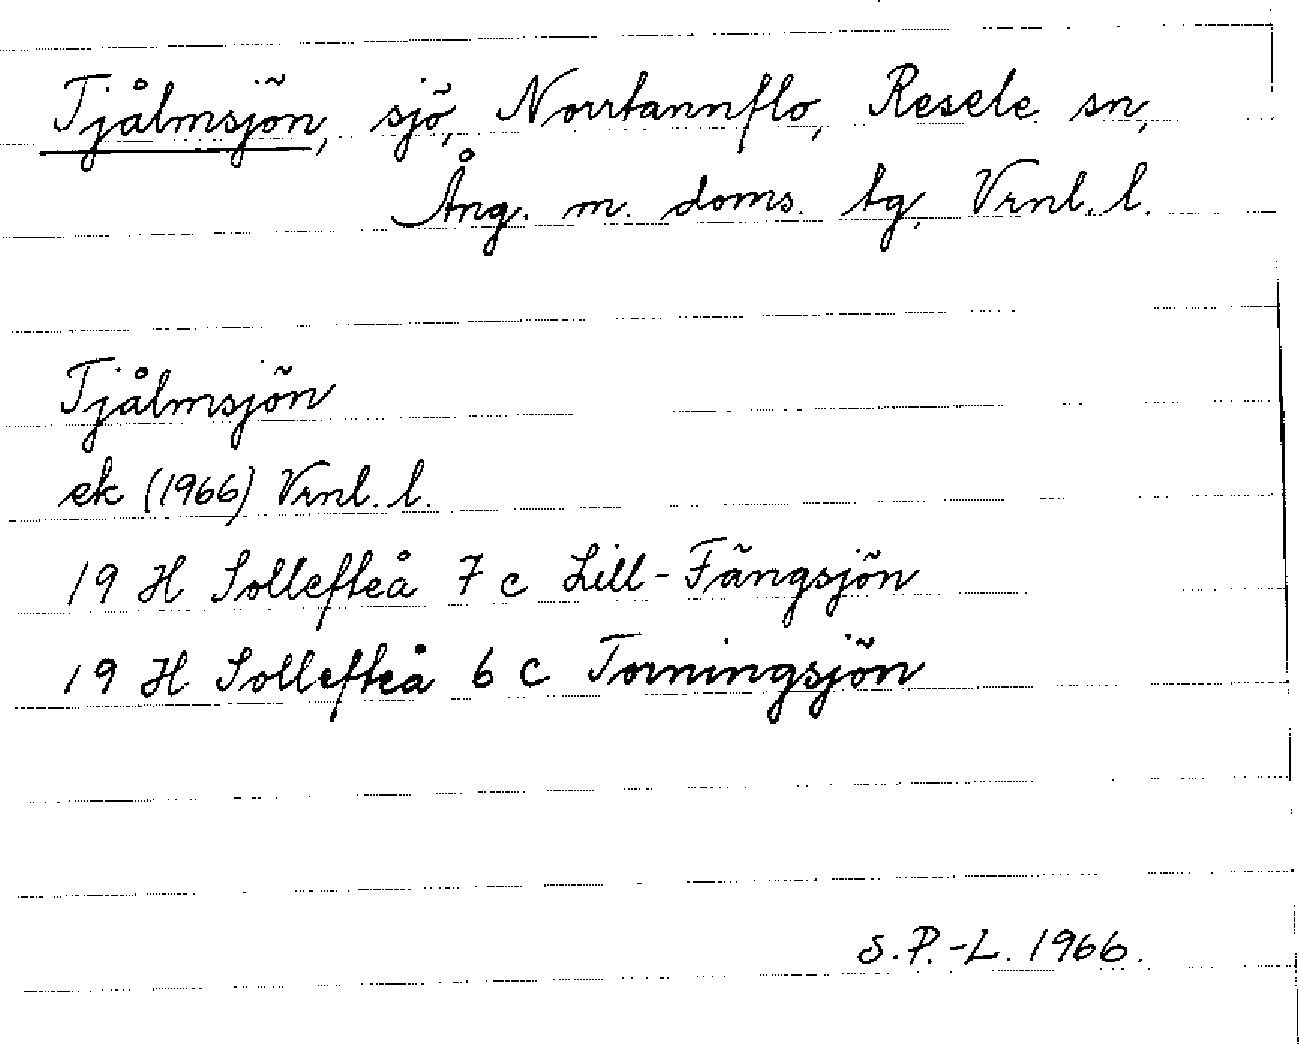 Tjålmsjön, sjö, Norrtannflo, Resele sn,
Ång. m. doms. tg, Vrnl. l.
Tjålmsjön
ek (1966) Vrnl. l.
19 H Sollefteå 7 c Lill-Fängsjön
19 H Sollefteå 6 c Torringsjön
S. P.-L. 1966.